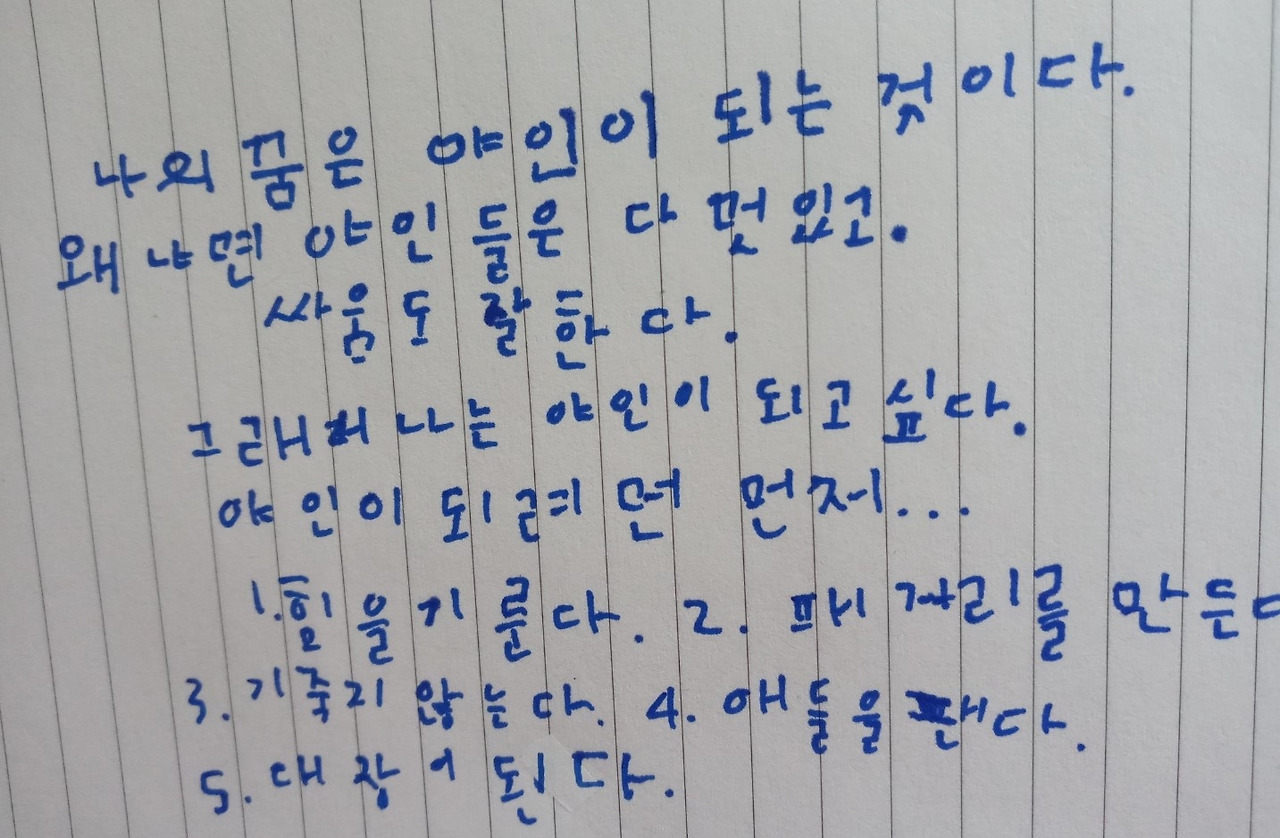 나의 꿈은 야인이 되는 것이다.
왜냐면 야인들은 다 멋있고.
싸움도 잘한다.
그래서 나는 야인이 되고싶다.
야인이 되려면 먼저...
1.힘을 기룬다. 2. 패거리를 만든다
3. 기죽지 않는다. 4. 애들을 팬다.
5. 대장이 된다.